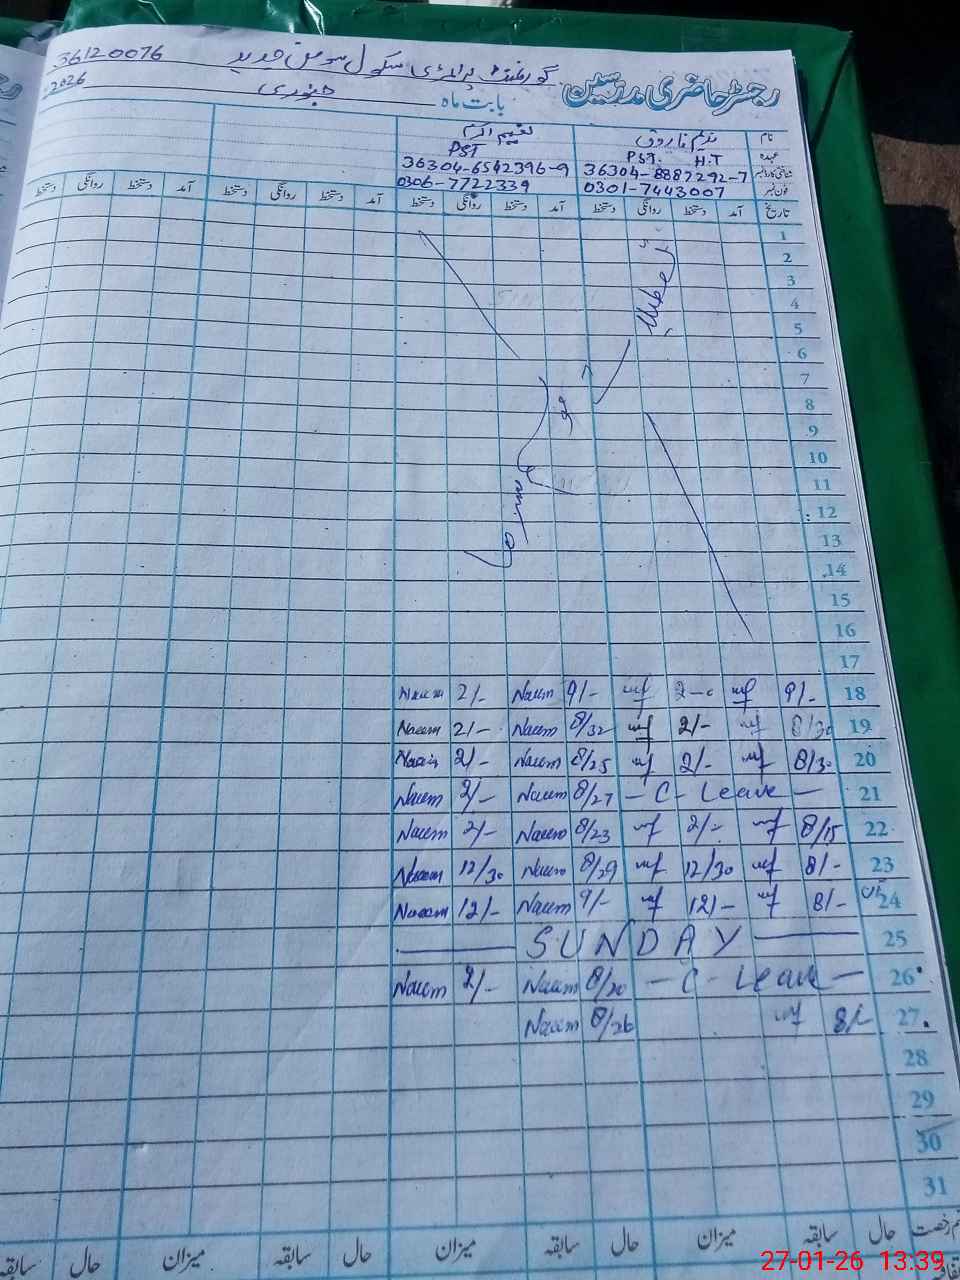 36120076 گورنمنٹ پرائمری سکول
رجسٹر حاضری مدرسین
بابت ماہ جنوری 2026
نام ندیم فاروق نعیم اکرم
عہدہ PST. H.T PST
شناختی کارڈ نمبر 36304-8882292-7 36304-6542396-9
فون نمبر 0301-7443007 0306-7722339
تاریخ آمد دستخط روانگی دستخط آمد دستخط روانگی دستخط آمد دستخط روانگی دستخط آمد دستخط روانگی دستخط
1
2
3
4
5
6
7
8
9
10
11
12
13
14
15
16
17
18 9/- 9/- Naeem 2/- Naeem
19 8/30 2/- 8/32 Naeem 2/- Naeem
20 8/30 2/- 8/25 Naeem 2/- Naeem
21 - C - Leave - 8/27 Naeem 2/- Naeem
22 8/15 2/- 8/23 Naeem 2/- Naeem
23 8/- 12/30 8/29 Naeem 12/30 Naeem
24 8/- 12/- 9/- Naeem 12/- Naeem
25 SUNDAY
26 - C - Leave - 8/20 Naeem 2/- Naeem
27 8/- 8/26 Naeem
28
29
30
31
حال سابقہ میزان حال سابقہ میزان حال سابقہ میزان حال سابقہ
27-01-26 13:39